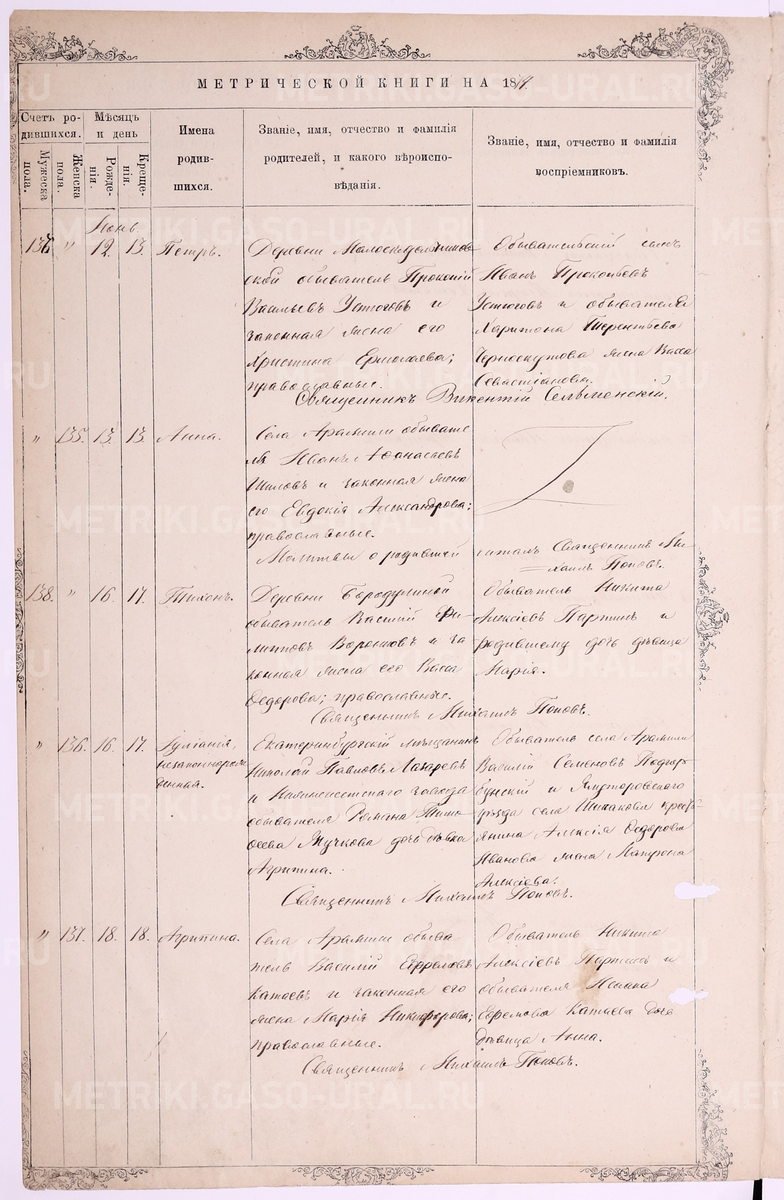 МЕТРИЧЕСКОЙ КНИГИ НА 18
Счетъ ро-
дившихся.
Мужеска
пола.
Женска
пола.
Мѣсяцъ
и день
Рожде-
нія.
Креще-
нія.
Имена
родив-
шихся.
Званіе, имя, отчество и фамилія
родителей, и какого вѣроиспо-
вѣданія.
Званіе, имя, отчество и фамилія
воспріемниковъ.
Іюнь
12. 13. Петръ.
Деревни
обыватель Прокопій
Васильевъ Устюговъ и
законная жена его
Христина Ермолаева;
православные.
Обывательскій сынъ
Иванъ Прокопьевъ
Устюговъ и обывателя
Харитона Терентьева
Черноскутова жена Васса
Севастіанова.
Священникъ Викентій
" 135. 13. 13. Анна.
Села Арамили обывате
ля Иванъ Афанасьевъ
Шиловъ и законная жена
его Евдокія Александрова;
православные.
Молитвы о родившей читалъ Священникъ Ми-
хаилъ Поповъ.
138. " 16. 17. Тихонъ.
Деревни Бородулиной
обыватель Василій Фи-
липповъ и за
конная жена его Васса
Ѳедорова; православные.
Обыватель Никита
Алексѣевъ Партинъ и
родившему дочь дѣвица
Марія.
Священникъ Михаилъ Поповъ.
" 136. 16. 17. Іуліанія,
незаконнорож
денная.
Екатеринбургскій мѣщанинъ
Николай Павловъ Лазаревъ
и завода
обывателя Романа Тимо
ѳеева дочь дѣвка
Агрипина.
Обыватель села Арамили
Василій Семеновъ Подгор
бунскій и Ялуторовскаго
уѣзда села крестья
янина Алексія Ѳедорова
Иванова жена Матрона
Алексіева.
Священникъ Михаилъ Поповъ.
" 137. 18. 18. Агрипина.
Села Арамили обыва
тель Василій Ефремовъ
Катаевъ и законная его
жена Марія Никифорова;
православные.
Обыватель Никита
Алексѣевъ Партинъ и
обывателя
Ефремова Катаева дочь
дѣвица Анна.
Священникъ Михаилъ Поповъ.
METRIKI.GASO-URAL.RU